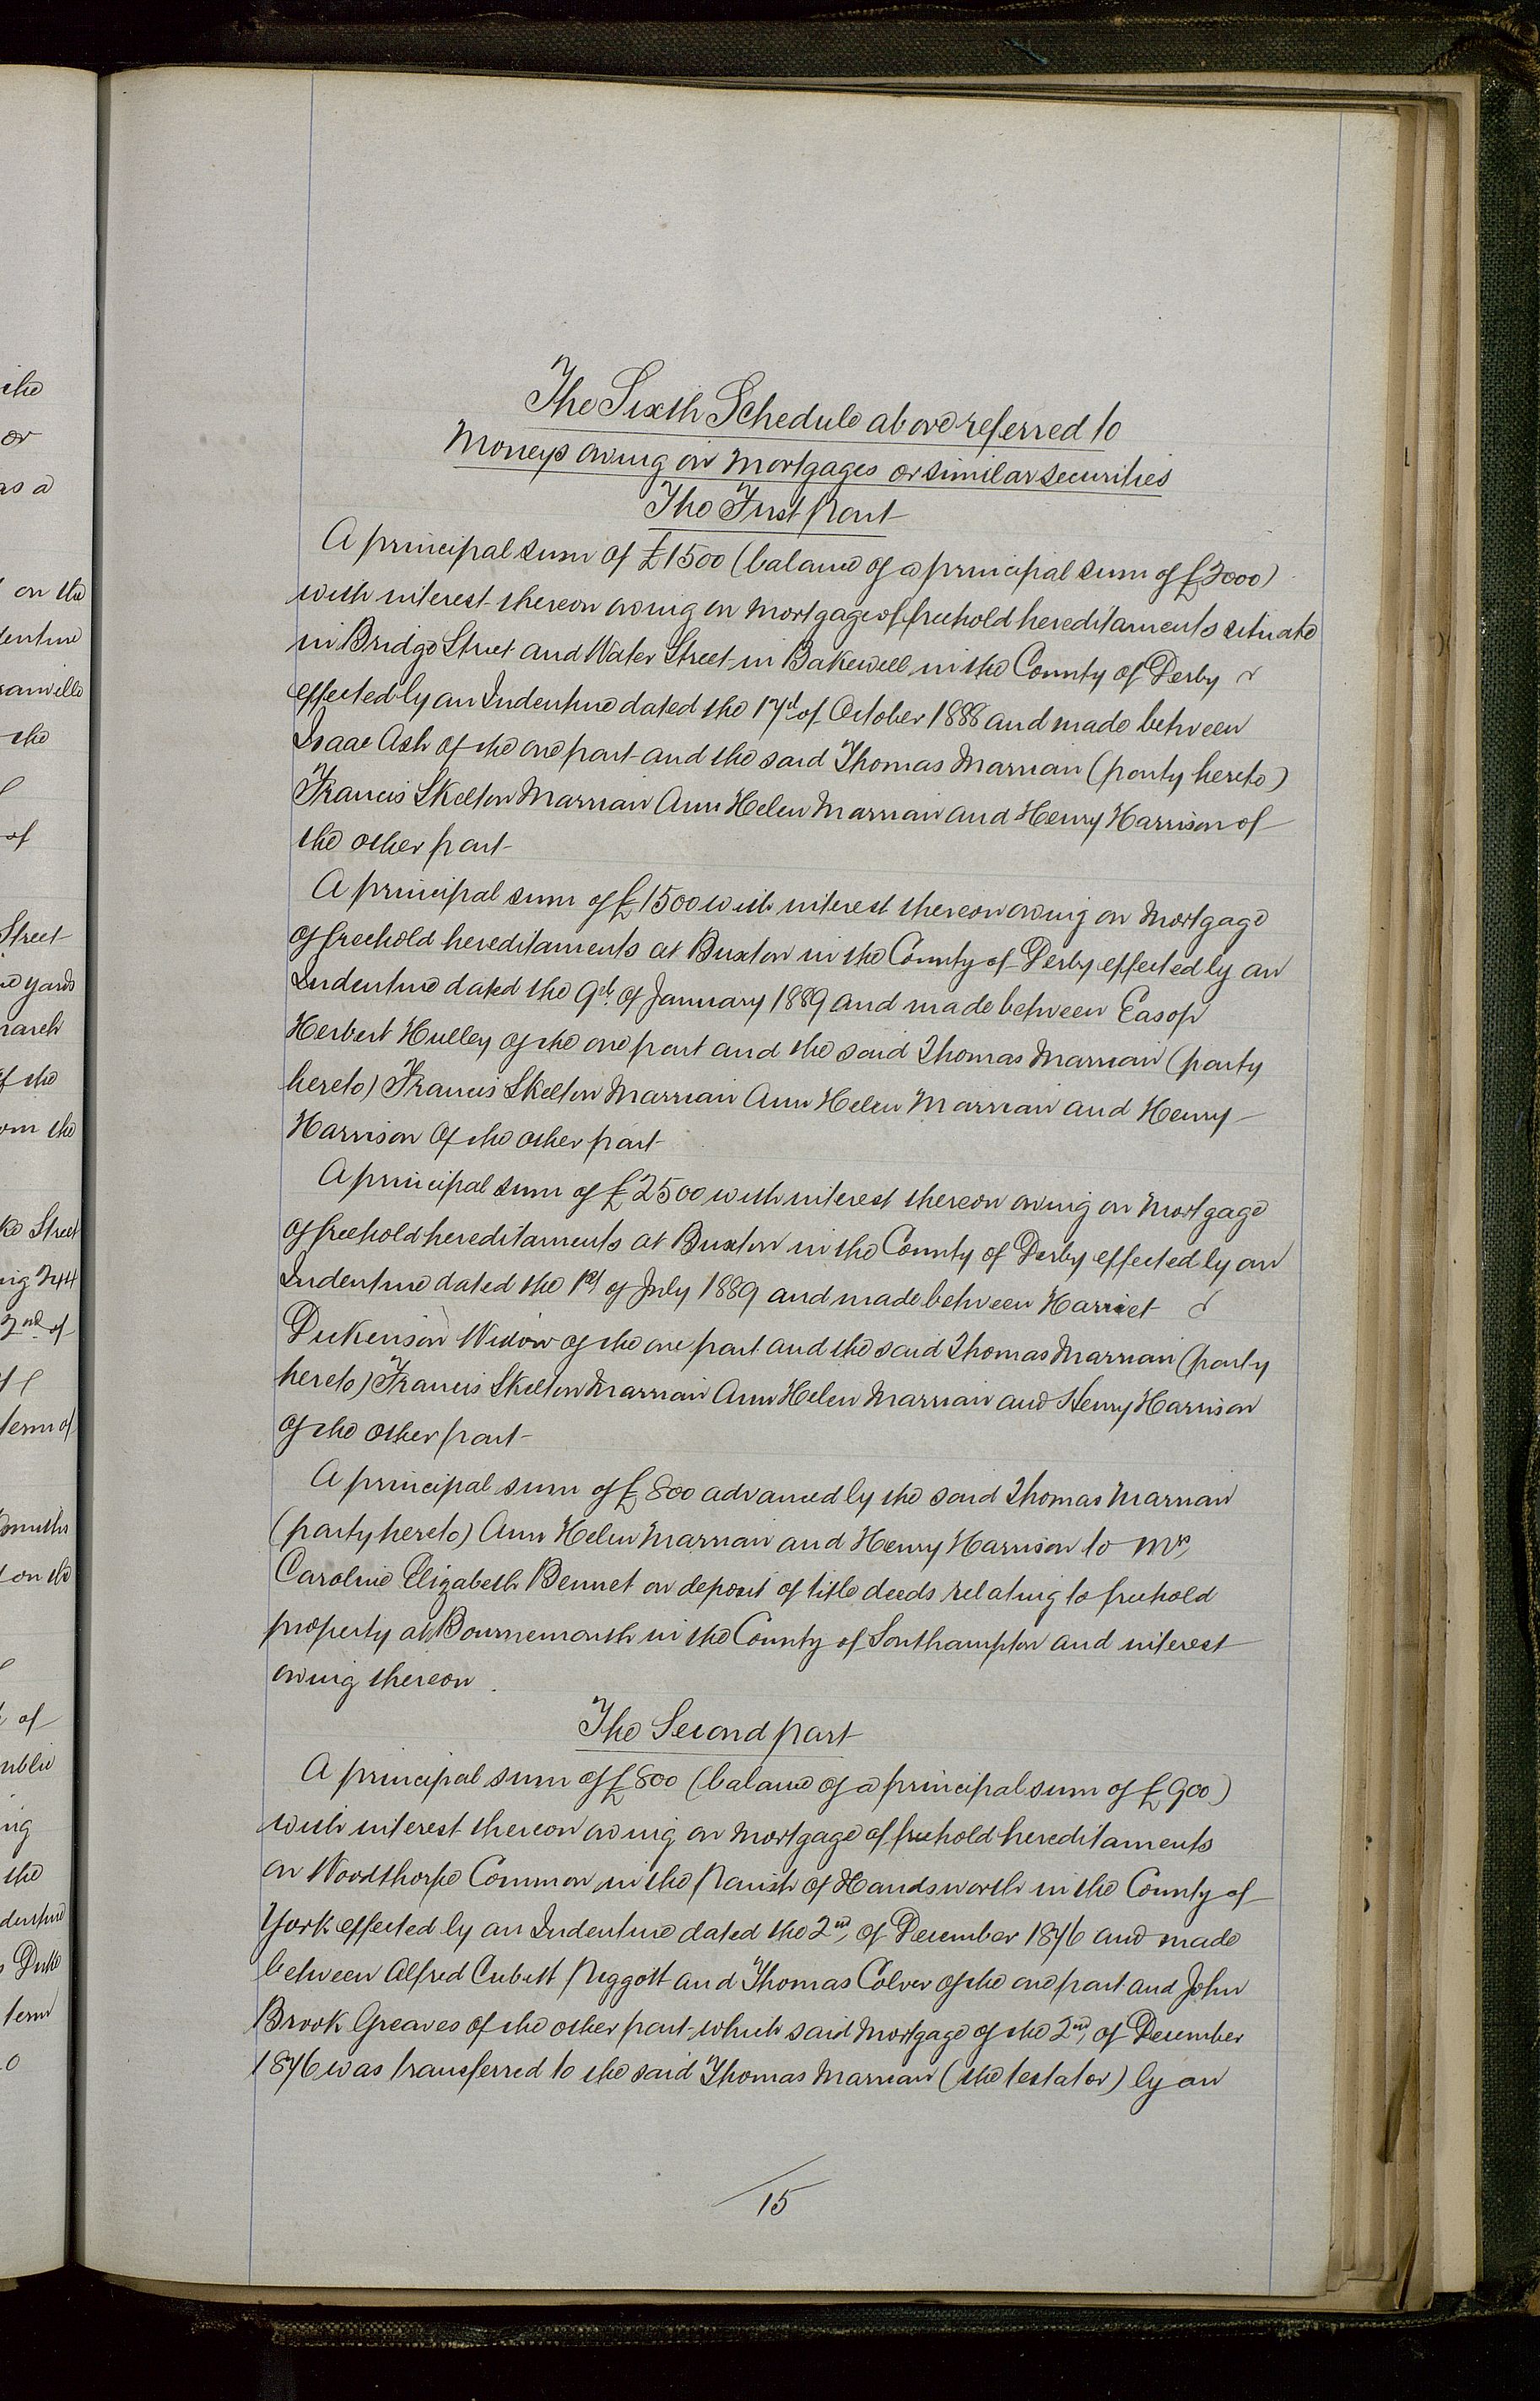 The Sixth Schedule above referred to
Moneys owing on Mortgages or similar securities
The First part
A principal sum of £1500 (balance of a principal sum of £2000)
with interest thereon owing on Mortgage of freehold hereditaments situate
in Bridge Street and Water Street in Bakewell in the County of Derby
effected by an Indenture dated the 17th of October 1888 and made between
Isaac Ash of the one part and the said Thomas Marrian (party hereto)
Francis Skelton Marrian Ann Helen Marrian and Henry Harrison of
the other part
A principal sum of £1500 with interest thereon owing on Mortgage
of freehold hereditaments at Buxton in the County of Derby effected by an
Indenture dated the 9th of January 1889 and made between Easop
Herbert Hulley of the one part and the said Thomas Marrian (party
hereto) Francis Skelton Marrian Ann Helen Marrian and Henry
Harrison of the other part
A principal sum of £2500 with interest thereon owing on Mortgage
of freehold hereditaments at Buxton in the County of Derby effected by an
Indenture dated the 1st of July 1889 and made between Harriet
Dickenson Widow of the one part and the said Thomas Marrian (party
hereto) Francis Skelton Marrian Ann Helen Marrian and Henry Harrison
of the other part
A principal sum of £800 advanced by the said Thomas Marrian
(party hereto) Ann Helen Marrian and Henry Harrison to Mrs
Caroline Elizabeth Bennet on deposit of title deeds relating to freehold
property at Bournemouth in the County of Southampton and interest
owing thereon.
The Second part
A principal sum of £800 (balance of a principal sum of £900)
with interest thereon owing on Mortgage of freehold hereditaments
on Woodthorpe Common in the Parish of Handsworth in the County of
York effected by an Indenture dated the 2nd of December 1876 and made
between Alfred Cubitt Piggott and Thomas Colver of the one part and John
Brook Greaves of the other part which said Mortgage of the 2nd of December
1876 was transferred to the said Thomas Marrian (the testator) by an
15